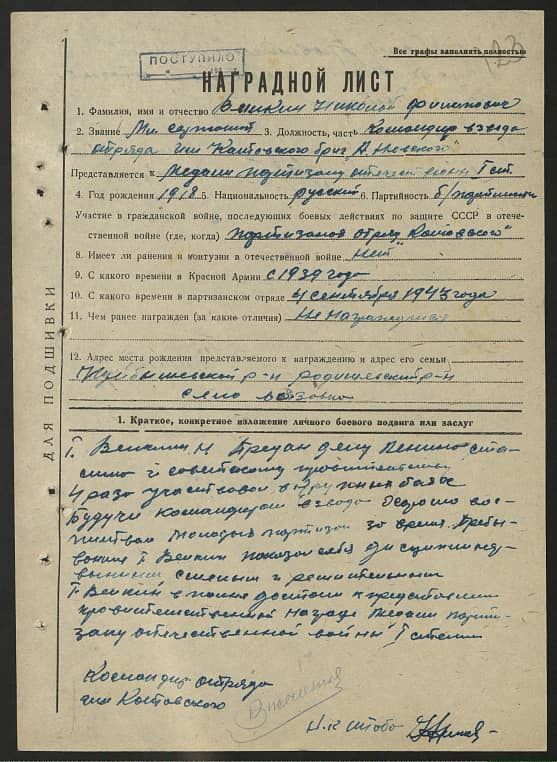 123
Все графы заполнять полностью
ПОСТУПИЛО
НАГРАДНОЙ ЛИСТ
1. Фамилия, имя и отчество Велкин Николай Филипович
2. Звание Мл сержант 3. Должность, часть Командир взвода
отряда им Котовского бриг „А. Невского"
Представляется к Медали партизану отечествены I ст.
4. Год рождения 1918 5. Национальность русский 6. Партийность б/партийный
Участие в гражданской войне, последующих боевых действиях по защите СССР в отече-
ственной войне (где, когда) партизанск отряд Котовского"
8. Имеет ли ранения и контузии в отечественной войне нет
9. С какого времени в Красной Армии с 1939 года
10. С какого времени в партизанском отряде 4 сентября 1943 года
11. Чем ранее награжден (за какие отличия) Не награждался
12. Адрес места рождения представляемого к награждению и адрес его семьи
р-н р-н
село
ДЛЯ ПОДШИВКИ
1. Краткое, конкретное изложение личного боевого подвига или заслуг
Т. Велкин Н Предан делу Ленина ста-
лина и советскому правительству
4 раза участвовал в боях
Будучи командиром взвода Хорошо вос-
питывал молодых партизан за время Пребы-
вания Т Велкин показал себя
смелым и решительным
Т Велкин вполне достоин к представлен
правительственной Награде Медали парти-
зану отечественной войны I степени
Командир отряда
им Котовского
Н-к штаба